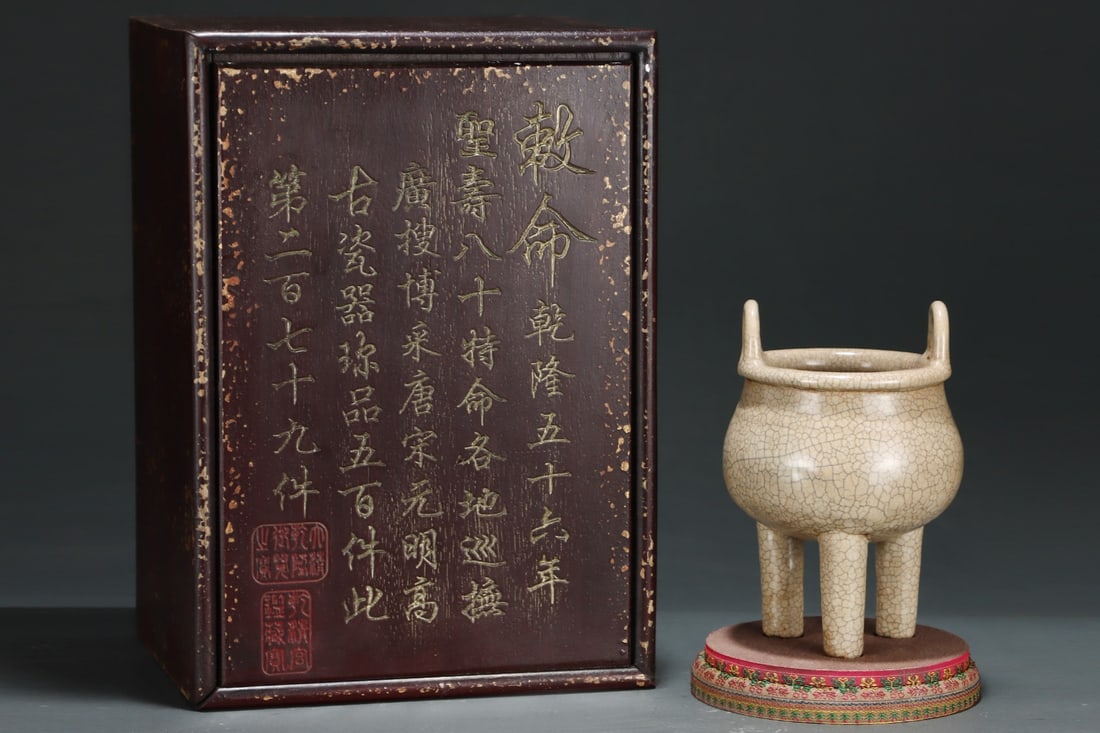 敕命乾隆五十六年
聖壽八十特命各地巡撫
廣搜博采唐宋元明高
古瓷器珎品五百件此
第二百七十九件